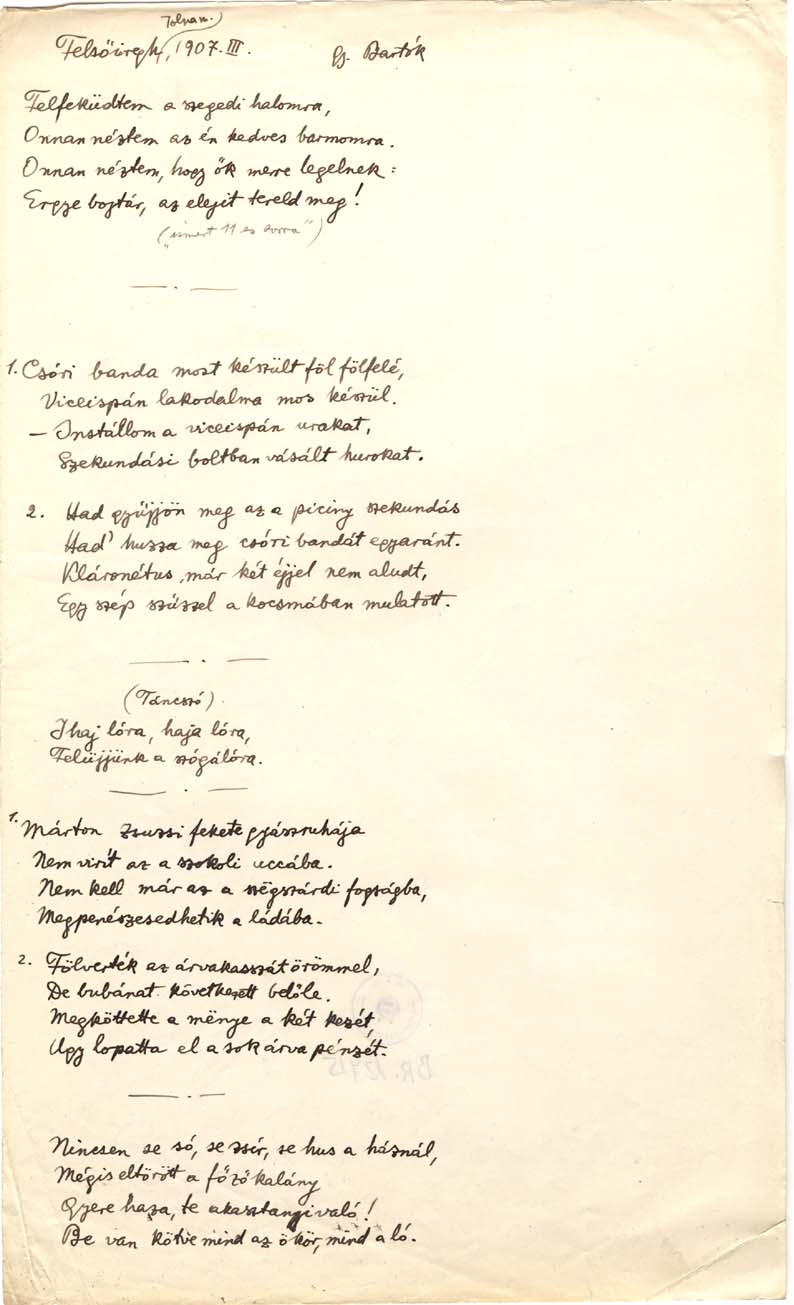 Tolnam.)
Felsőiregh, 1907. III. gy. Bartók
Felfeküdtem a szegedi halomra,
Onnan néztem az én kedves barmomra.
Onnan néztem, hogy ők merre legelnek:
Ergye bojtár, az elejit tereld meg!
("ismert 11 es sorra")
1. Csóri banda most készült föl fölfelé,
Viceispán lakodalma mos készül.
— Instállom a viceispán urakat,
Szekundási boltban vásált hurokat.
2. Had gyüjjön meg az a piciny szekundás
Had' huzza meg csóri bandát egyaránt.
Kláronétus már két éjjel nem aludt,
Egy szép szüzzel a kocsmában mulatott.
(Táncszó)
Ihaj lóra, haja lóra,
Felüjjünk a szógálóra.
1. Márton Zsuzsi fekete gyászruhája
Nem virít az a szokoli uccába.
Nem kell már az a szëgszárdi fogságba,
Megpenészesedhetik a ládába.
2. Fölverték az árvakasszát örömmel,
De bubánat következett belőle.
Megköttette a mënye a két kezét,
Ugy lopatta el a sok árva pénzét.
BR. 1275
Nincsen se só, se zsír, se hus a háznál,
Mégis eltörött a főzőkalány
Gyere haza, te akasztanyivaló!
Be van kötve mind az ökör, mind a ló.